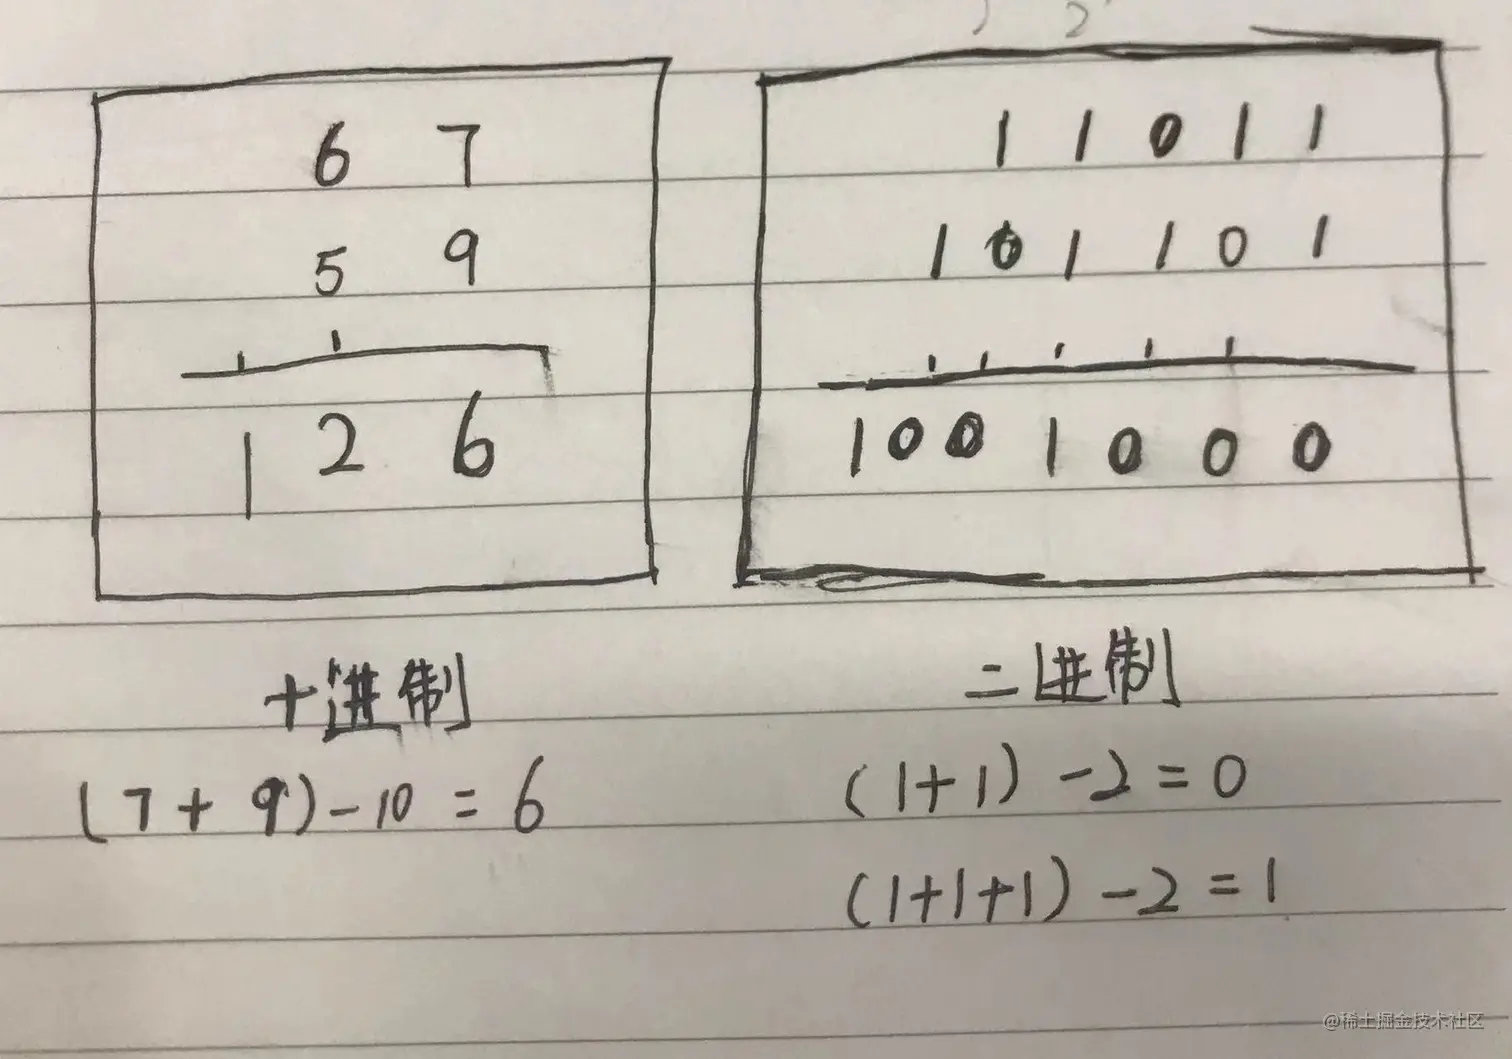 2
6 7
5 9
1 2 6
十进制
(7+9)-10=6
1 1 0 1 1
1 0 1 1 0 1
1 0 0 1 0 0 0
二进制
(1+1)-2=0
(1+1+1)-2=1
@稀土掘金技术社区